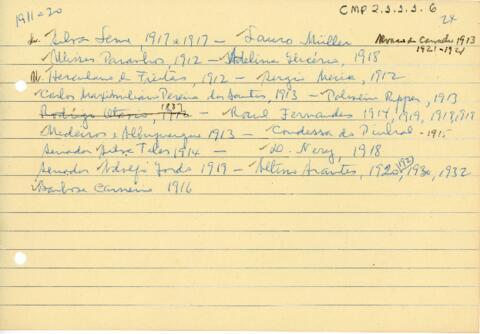 1911-20
CMP 2.1.1.1.6
24
L. Silva Leme, 1917 e 1917 — Lauro Müller
Alvaro de Carvalho 1913
1921-1921
Ulisses Paranhos, 1912 — Adelina Glicério, 1918
M. Herculano de Freitas, 1912 — Sergio Meira, 1912
Carlos Maximiliano Pereira dos Santos, 1913 — 1913
Rodrigo Otavio, 1912 1837 — Raul Fernandes 1914, 1919, 1918, 1918
Medeiros e Albuquerque 1913 — Condessa do Pinhal — 1915
Senador Silva Teles 1914 — W. Nerez, 1918
Senador Adolfo Gordo 1919 — Altino Arantes, 1920, 1921, 1930, 1932
Barbosa Carneiro 1916